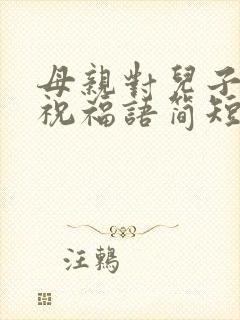 母親對兒子
祝福語簡短
汪鶇